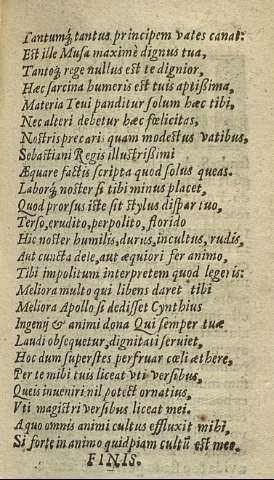 Tantumq́; tantus principem vates canat:
Est ille Musa maximè dignus tua,
Tantoq́; rege nullus est te dignior,
Hæc sarcina humeris est tuis aptißima,
Materia Teui panditur solum hæc tibi,
Nec alteri debetur hæc fœlicitas,
Nostris precari quam modestus vatibus,
Sebastiani Regis illustrißimi
Æquare factis scripta quod solus queas.
Laborq́; noster si tibi minus placet,
Quod prorsus iste sit stylus dispar tuo,
Terso, erudito, perpolito, florido
Hic noster humilis, durus, incultus, rudis,
Aut cuncta dele, aut æquiori fer animo,
Tibi impolitum interpretem quod legeris:
Meliora multo qui libens daret tibi
Meliora Apollo si dedisset Cynthius
Ingenij & animi dona Qui semper tuæ
Laudi obsequetur, dignitati seruiet,
Hoc dum superstes perfruar cœli æthere,
Per te mihi tuis liceat vti versibus,
Queis inueniri nil potest ornatius,
Vti magistri versibus liceat mei.
A quo omnis animi cultus effluxit mihi,
Si forte in animo quidpiam cultū est meo.
FINIS.